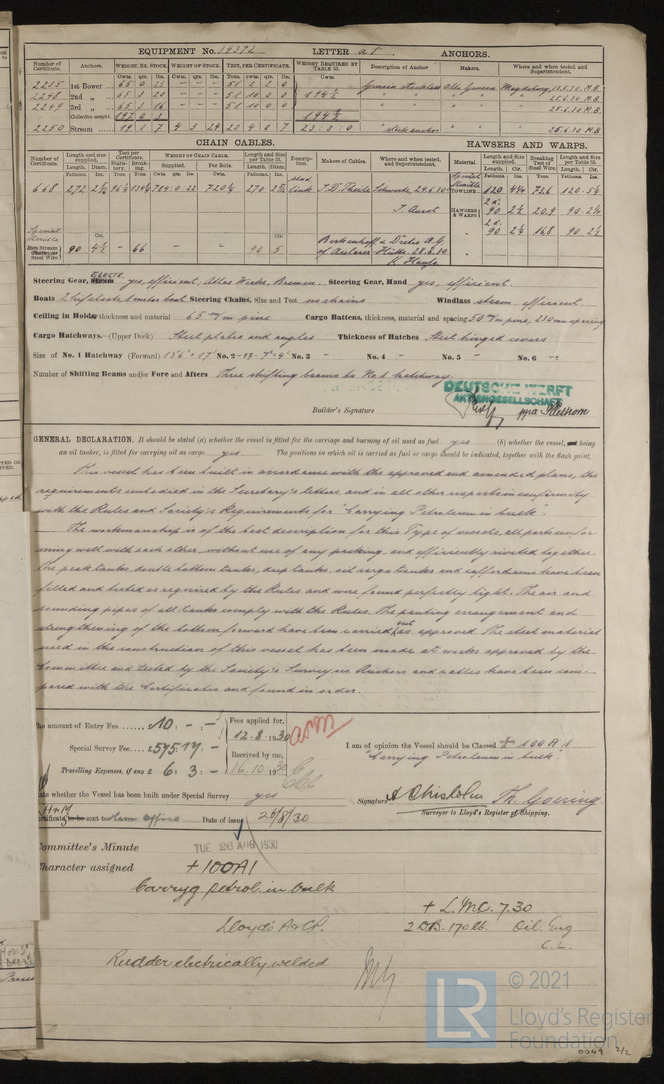 EQUIPMENT No. 39372 LETTER at. ANCHORS.
Number of Certificate. Anchors. WEIGHT, EX. STOCK. WEIGHT OF STOCK. TEST, PER CERTIFICATE. WEIGHT REQUIRED BY TABLE 53. Description of Anchor Makers. Where and when tested and Superintendent.
Cwts. qrs. lbs. Cwts. qrs. lbs. Tons. cwts. qrs. lbs. Cwts.
2235 1st Bower 65 0 - - - 51 2 2 0 Magdeburg, 11.5.30 M.B.
2248 2nd " 65 3 20 - - - 51 10 0 0 194½ " " " 25.6.30 M.B.
2249 3rd " 65 3 16 - - - 51 10 0 0 " " " 25.6.30 M.B.
Collective weight. 197 0 3 194½
2250 Stream 19 1 7 4 3 24 20 4 0 7 23 . 3 . 0 " stock anchor " " 25.6.30 M.B.
CHAIN CABLES. HAWSERS AND WARPS.
Number of Certificate. Length and size supplied. Test per Certificate. WEIGHT OF CHAIN CABLE. Length and Size per Table 53. Description. Makers of Cables. Where and when tested, and Superintendent. Material. Length and Size supplied. Breaking Test of Steel Wire. Length and Size per Table 53.
Length. Diam. Statutory. Breaking. Supplied. Per Rule. Length. Diam. Length. Cir. Length. Cir.
Fathoms. Ins. Tons. Tons. Cwts. qrs. lbs. Cwts. Fathoms. Ins. Fathoms. Ins. Tons. Fathoms. Ins.
668 272 784.0.22 270 Stud Link J.D. Theile Schwerte 24.6.30 TOWLINE 120 4¾ 73.6 120 . 5½
HAWSERS & WARPS 2 a. 90 2½ 20.9 90 . 2¾
2 a. 90 2¼ 16.8 90 . 2½
Iron Stream Chain or Steel Wire 90 4½ - 66 - - 90 5 28.6.30
Steering Gear, ELECTR. yes, efficient, Atlas Werke, Bremen. Steering Gear, Hand yes, efficient.
Boats 2 lifeboats 1 motor boat Steering Chains, Size and Test no chains Windlass steam, efficient
Ceiling in Holds, thickness and material 65 m/m pine Cargo Battens, thickness, material and spacing 50 m/m pine, 230 mm spacing
Cargo Hatchways.—(Upper Deck) Steel plates and angles Thickness of Hatches Steel hinged covers
Size of No. 1 Hatchway (Forward) No. 2 No. 3 - No. 4 - No. 5 - No. 6 -
Number of Shifting Beams and/or Fore and Afters Three shifting beams to No 1 hatchway
DEUTSCHE WERFT
AKTIENGESELLSCHAFT
Builder's Signature ppa
GENERAL DECLARATION. It should be stated (a) whether the vessel is fitted for the carriage and burning of oil used as fuel yes (b) whether the vessel, not being
an oil tanker, is fitted for carrying oil as cargo yes. The positions in which oil is carried as fuel or cargo should be indicated, together with the flash point.
This vessel has been built in accordance with the approved and amended plans, the
requirements embodied in the Secretary's letters, and in all other respects in conformity
with the Rules and Society's Requirements for "Carrying Petroleum in bulk".
The workmanship is of the best description for this Type of vessels, all parts confor-
ming well with each other, without use of any packing, and efficiently rivetted together.
The peak tanks, double bottom tanks, deep tanks, oil cargo tanks and cofferdams have been
filled and tested as required by the Rules and were found perfectly tight. The air and
sounding pipes of all tanks comply with the Rules. The panting arrangement and
strengthening of the bottom forward have been carried out as approved. The steel material
used in the construction of this vessel has been made at works approved by the
Committee and tested by the Society's Surveyors. Anchors and cables have been com-
pared with the Certificates and found in order.
The amount of Entry Fee ...... £10 : - : - Fees applied for, 12.8.1930 arm
Special Survey Fee.... £575 : 17 : - Received by me,
Travelling Expenses, if any £ 6 : 3 : - 16.10.1930
I am of opinion the Vessel should be Classed + 100 A 1
"Carrying Petroleum in bulk".
State whether the Vessel has been built under Special Survey yes
Signature A Chisholm Th. Goering
Surveyor to Lloyd's Register of Shipping.
Certificate to be sent to Ham office Date of issue 26/8/30
Committee's Minute TUE. 26 AUG 1930
Character assigned + 100A1
Carryg. petrol. in bulk
+ L.M.C. 7.30
Lloyd's A & C.P. 2 D.B. 170 lb. Oil. Eng
C.L.
Rudder electrically welded
LR © 2021
Lloyd's Register
Foundation
0049 2/2